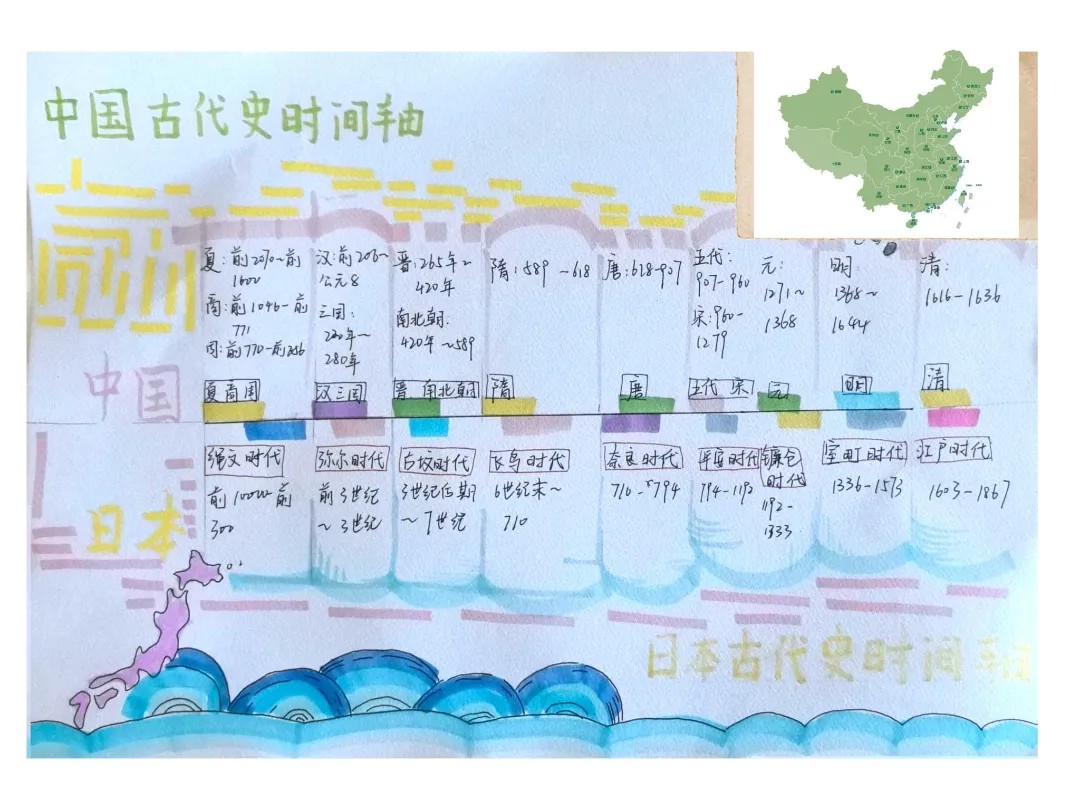 中国古代史时间轴
夏：前2070~前
1600
商：前1046-前
771
周：前770-前256
汉：前206~
公元8
三国：
220年~
280年
晋：265年~
420年
南北朝：
420年~589
隋：589~618
唐：618-907
五代：
907-960
宋：960-
1279
元：
1271~
1368
明：
1368~
1644
清：
1616-1636
中国
夏商周
汉三国
晋 南北朝
隋
唐
五代 宋
元
明
清
日本
绳文时代
前10000前
300
弥尔时代
前3世纪
~3世纪
古坟时代
3世纪后期
~7世纪
飞鸟时代
6世纪末~
710
奈良时代
710-794
平安时代
794-1192
镰仓
时代
1192-
1333
室町时代
1336-1573
江户时代
1603-1867
日本古代史时间轴